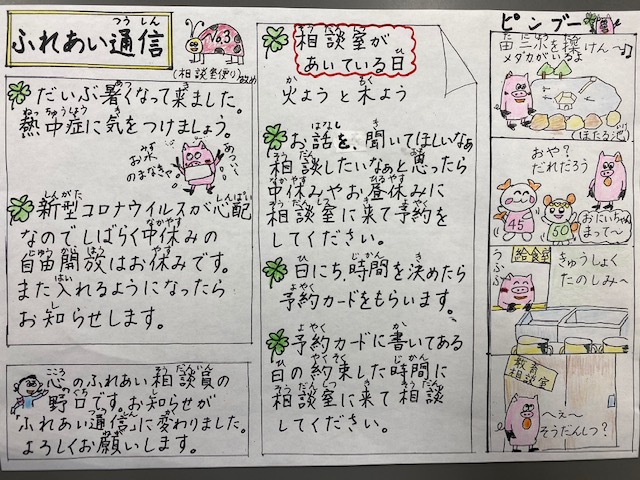 ふれあい通信
No.3
(相談室便り改め)
だいぶ暑くなって来ました。
熱中症に気をつけましょう。
お水
のまなきゃ。
あつ〜い
新型コロナウイルスが心配
なのでしばらく中休みの
自由開放はお休みです。
また入れるようになったら
お知らせします。
心のふれあい相談員の
野口です。お知らせが
「ふれあい通信」に変わりました。
よろしくお願いします。
相談室が
あいている日
火ようと木よう
お話を、聞いてほしいなぁ
相談したいなぁと思ったら
中休みやお昼休みに
相談室に来て予約を
してください。
日にち、時間を決めたら
予約カードをもらいます。
予約カードに書いてある
日の約束した時間に
相談室に来て相談
してください。
ピンブー
メダカがいるよ
(ほたる池)
おや?
だれだろう
45
50
おにいちゃん
まって〜
給食室
うふふ
きゅうしょく
たのしみ〜
教育
相談室
へぇ〜
そうだんしつ?